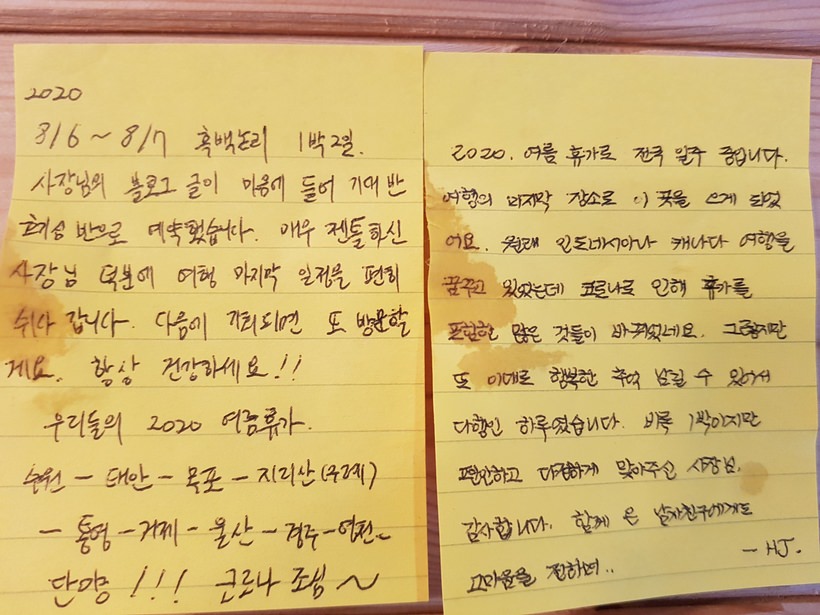 2020
8/6 ~ 8/7 흑백논리 1박2일.
사장님의 블로그 글이 마음에 들어 기대 반
호기심 반으로 예약했습니다. 매우 젠틀하신
사장님 덕분에 여행 마지막 일정을 편히
쉬다 갑니다. 다음에 기회되면 또 방문할
게요. 항상 건강하세요!!
우리들의 2020 여름휴가.
수원 - 태안 - 목포 - 지리산(구례)
- 통영 - 거제 - 울산 - 경주 - 영천~
단양!!! 코로나 조심 ~
2020. 여름 휴가로 전국 일주 중입니다.
여행의 마지막 장소로 이 곳을 오게 되었
어요. 원래 인도네시아나 캐나다 여행을
꿈꾸고 있었는데 코로나로 인해 휴가를
포함한 많은 것들이 바뀌었네요. 그렇지만
또 이대로 행복한 추억 남길 수 있어서
다행인 하루였습니다. 비록 1박이지만
편안하고 다정하게 맞아주신 사장님.
감사합니다. 함께 온 남자친구에게도
고마움을 전하며..
- HJ.